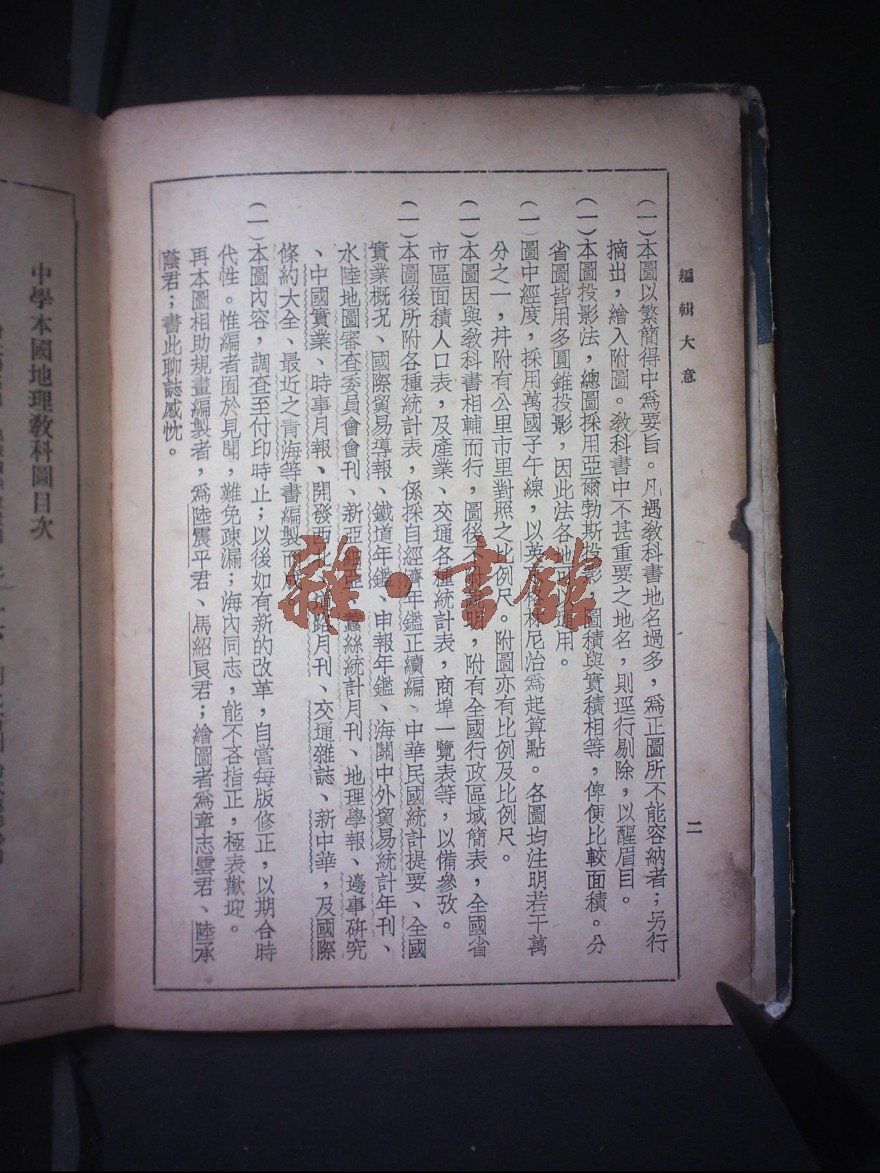 編輯大意
二
(一)本圖以繁簡得中爲要旨。凡遇敎科書地名過多，爲正圖所不能容納者；另行
摘出，繪入附圖。敎科書中不甚重要之地名，則逕行剔除，以醒眉目。
(一)本圖投影法，總圖採用亞爾勃斯投影，圖積與實積相等，俾便比較面積。分
省圖皆用多圓錐投影，因此法各地
用。
(一)圖中經度，採用萬國子午線，以英
尼治爲起算點。各圖均注明若干萬
分之一，幷附有公里市里對照之比例尺。附圖亦有比例及比例尺。
(一)本圖因與敎科書相輔而行，圖後
附有全國行政區域簡表，全國省
市區面積人口表，及產業、交通各種統計表，商埠一覽表等，以備參攷。
(一)本圖後所附各種統計表，係採自經濟年鑑正續編、中華民國統計提要、全國
實業概況、國際貿易導報、鐵道年鑑、申報年鑑、海關中外貿易統計年刊、
水陸地圖審查委員會會刊、新亞
蠶絲統計月刊、地理學報、邊事硏究
、中國實業、時事月報、開發西北
月刊、交通雜誌、新中華，及國際
條約大全、最近之青海等書編製而成
(一)本圖內容，調查至付印時止；以後如有新的改革，自當每版修正，以期合時
代性。惟編者囿於見聞，難免疎漏；海內同志，能不吝指正，極表歡迎。
再本圖相助規畫編製者，爲陸震平君、馬紹良君；繪圖者爲章志雲君、陸承
蔭君；書此聊誌感忱。
中學本國地理敎科圖目次
雜·書館